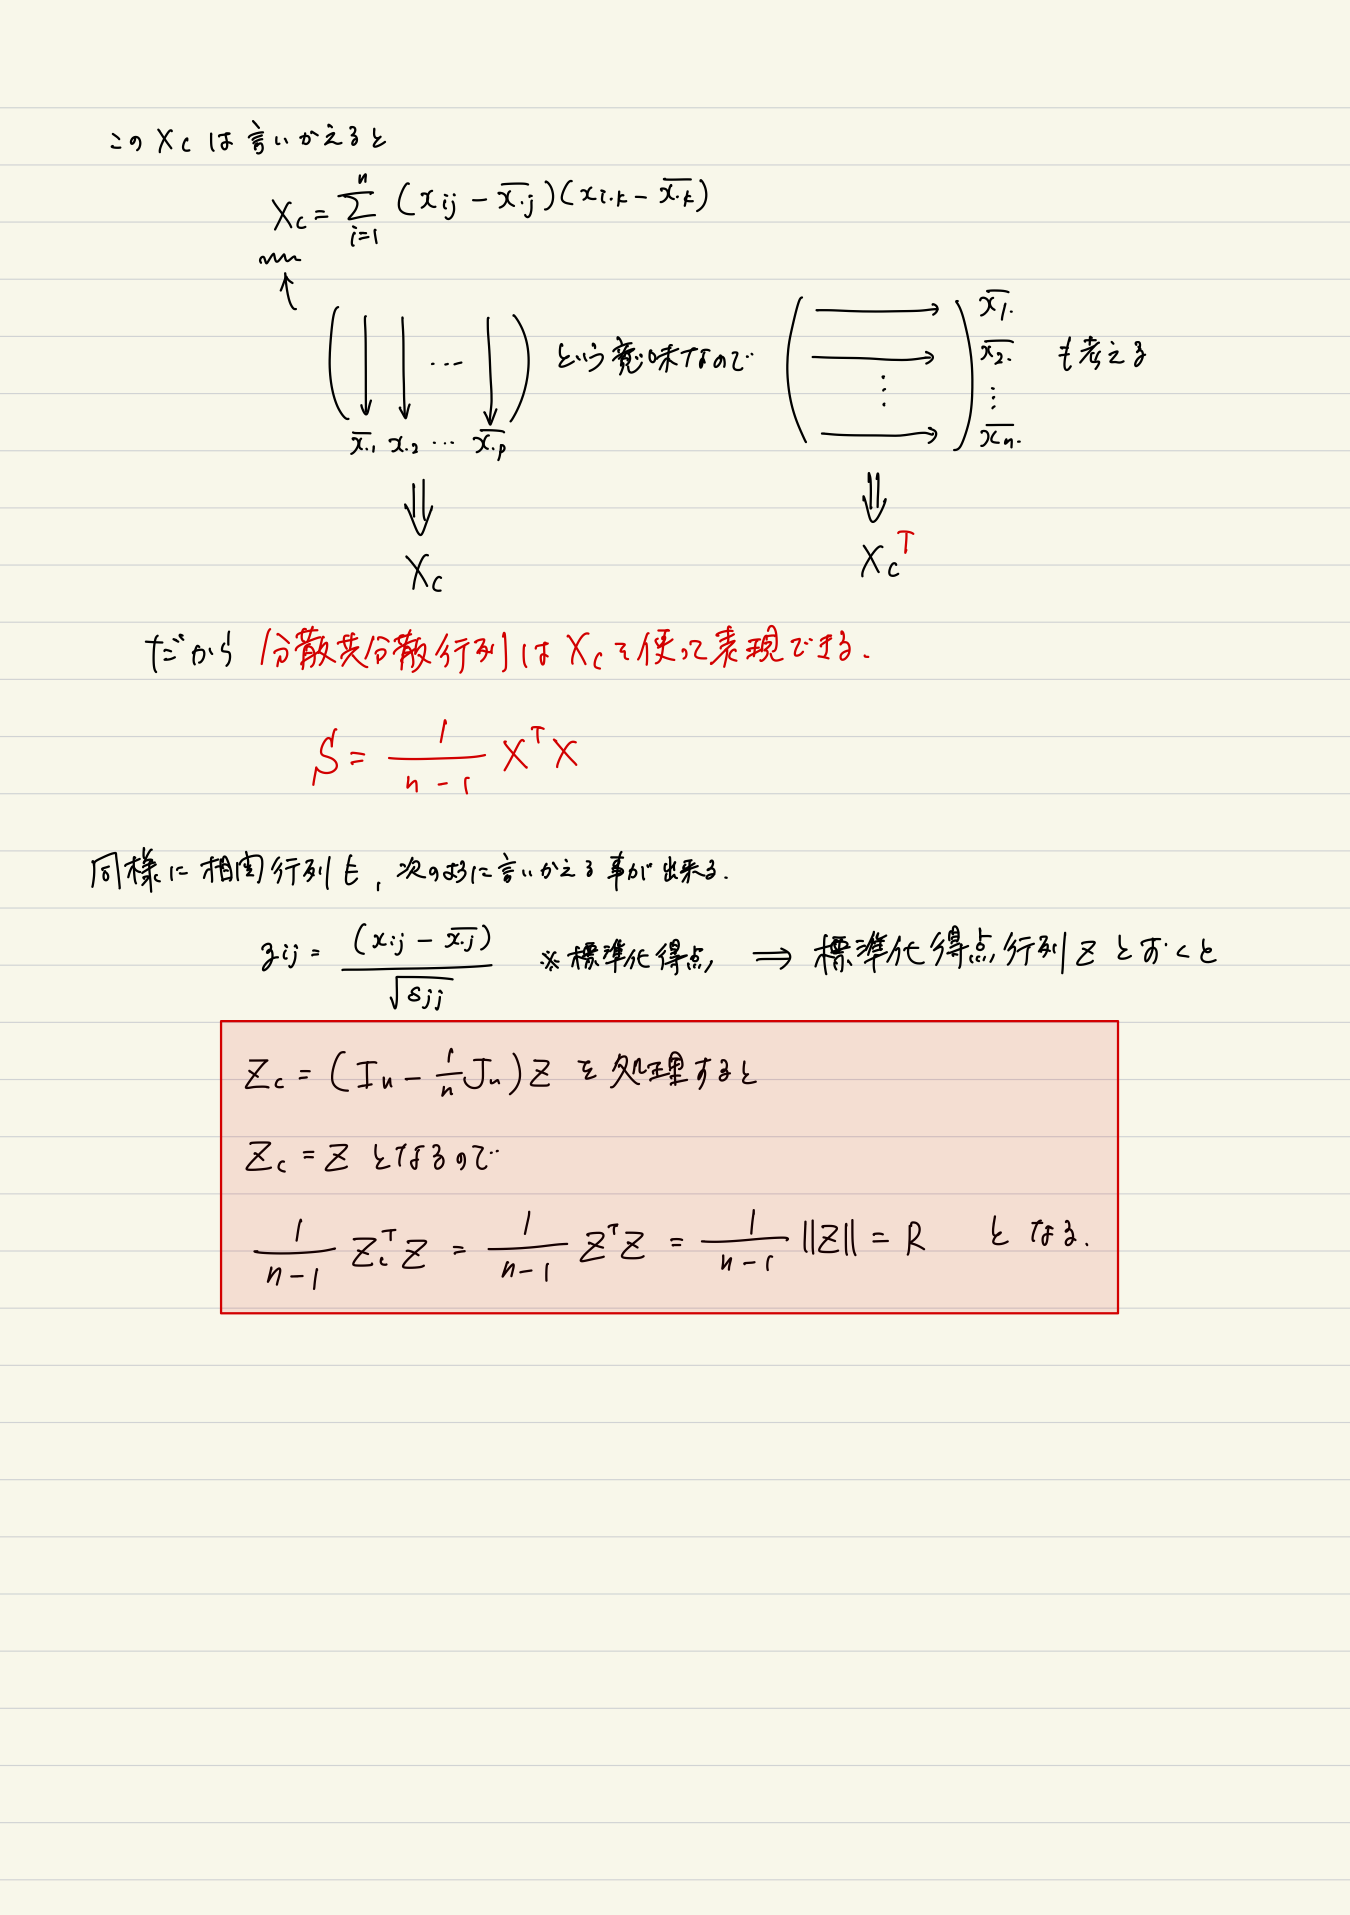 この Xc は言いかえると
Xc = Σ_{i=1}^{n} (x_{ij} - \overline{x_{·j}})(x_{i·k} - \overline{x_{·k}})
( ↓ ↓ … ↓ ) という意味なので ( → → ⋮ → ) \overline{x_{1·}} \overline{x_{2·}} ⋮ \overline{x_{n·}} も考える
\overline{x_{·1}} x_{·2} … \overline{x_{·p}}
⇓ ⇓
Xc Xc^T
だから 分散共分散行列は Xc を使って表現できる.
S = \frac{1}{n-1} X^T X
同様に 相関行列も, 次のように言いかえる事が出来る.
z_{ij} = \frac{(x_{ij} - \overline{x_{·j}})}{\sqrt{s_{jj}}} ※標準化得点 ⇒ 標準化得点行列 Z とおくと
Zc = (I_n - \frac{1}{n} J_n) Z を処理すると
Zc = Z となるので
\frac{1}{n-1} Zc^T Z = \frac{1}{n-1} Z^T Z = \frac{1}{n-1} ||Z|| = R となる.